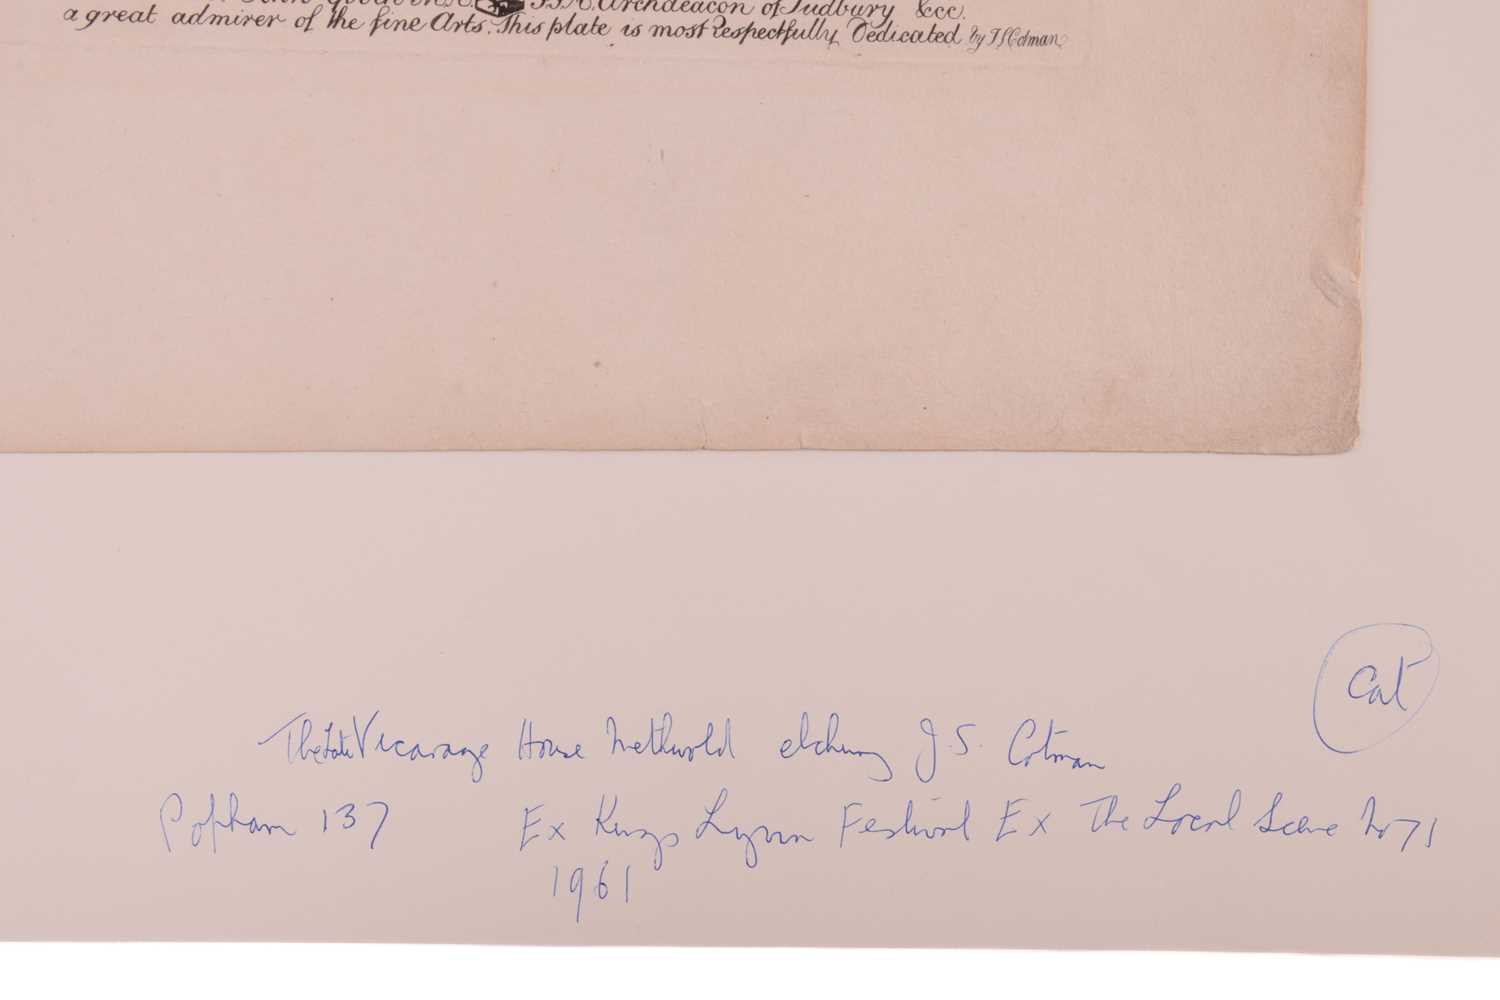 Archdeacon of Sudbury &cc.
a great admirer of the fine Arts. This plate is most Respectfully Dedicated by J S Cotman
Cat
The Late Vicarage House Methwold etching J. S. Cotman
Popham 137 Ex Kings Lynn Festival Ex The Local Scene No 71
1961